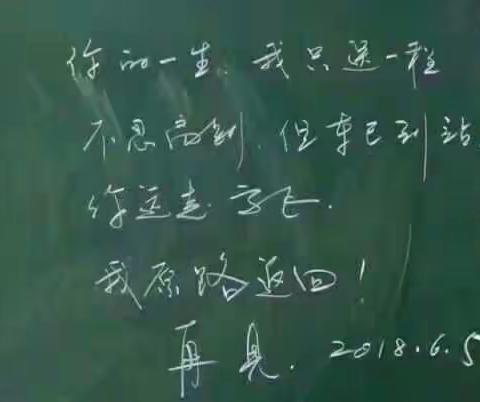 你的一生,我只送一程
不忍离别,但车已到站
你远走高飞.
我原路返回!
再见. 2018.6.5